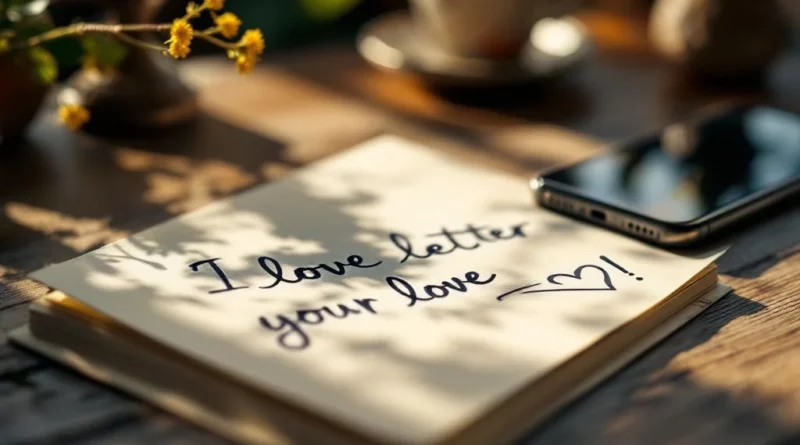 I love letter
your love !